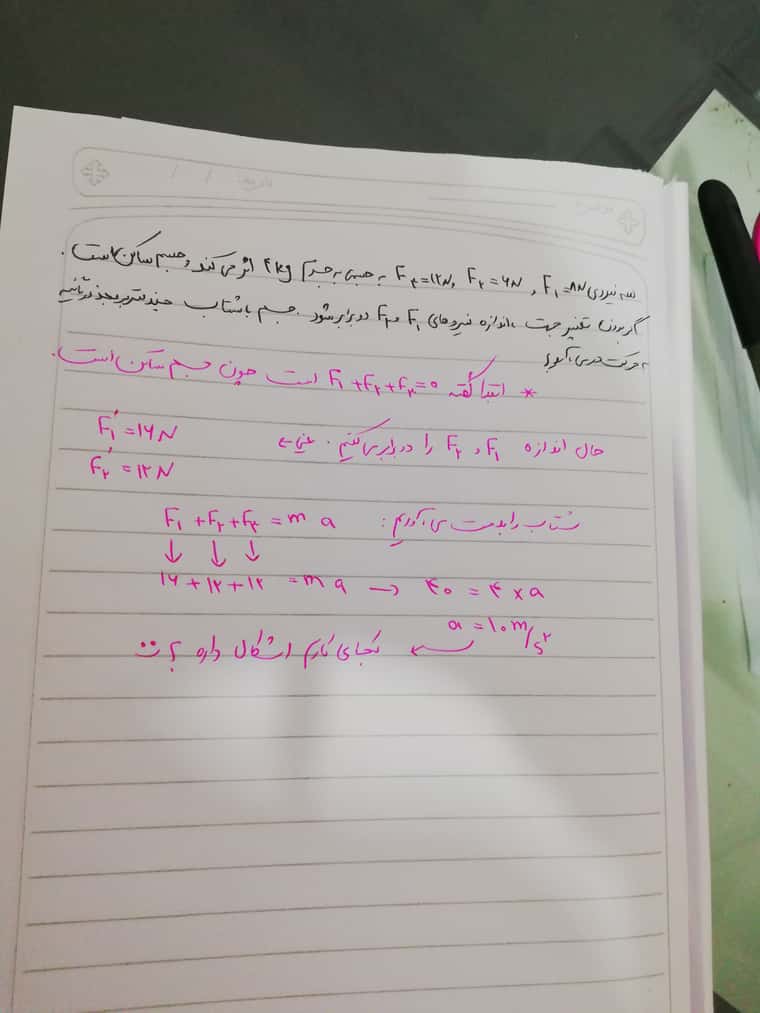 سه نیروی F₁=۸N , F₂=۶N , F₃=۱۲N به جسمی به جرم ۴kg اثر می کند و جسم ساکن است.
اگر بدون تغییر جهت ، اندازه نیروهای F₁ و F₂ دو برابر شود. جسم با شتاب چند متر بر مجذور ثانیه
به حرکت در می آید؟
* ابتدا گفته F₁+F₂+F₃=۰ است چون جسم ساکن است.
حال اندازه F₁ و F₂ را دو برابر می کنیم. یعنی ←
F₁′=۱۶N
F₂′=۱۲N
شتاب را بدست می آوریم: F₁+F₂+F₃=m a
↓ ↓ ↓
۱۶+۱۲+۱۲ = m a → ۴۰ = ۴×a
a = ۱۰m/s²
کجای کارم اشکال داره ؟